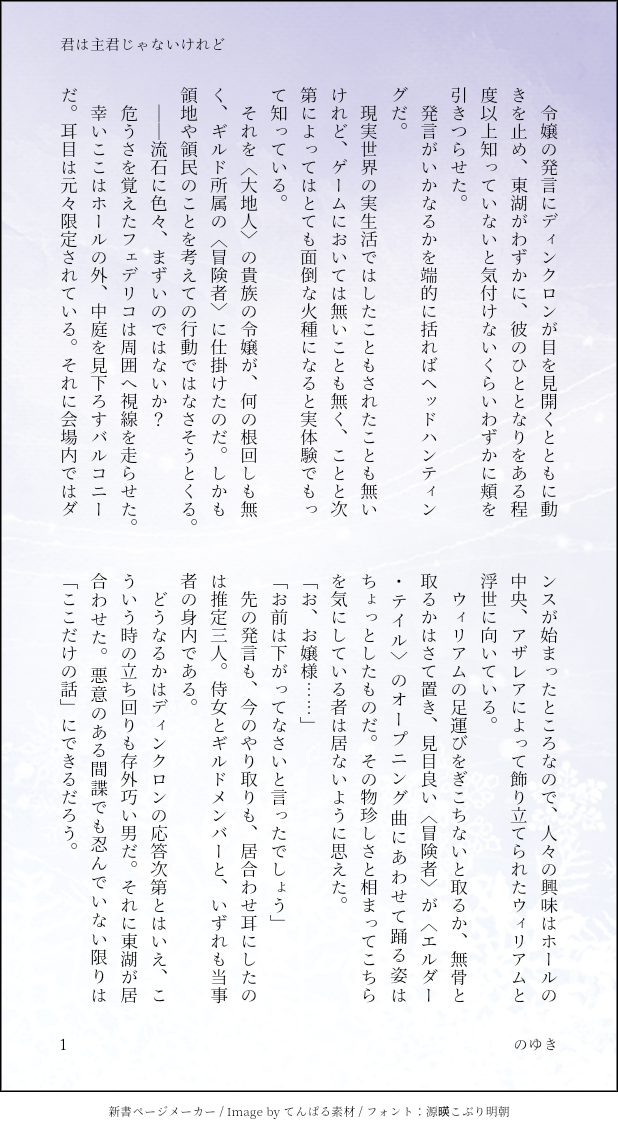 君は主君じゃないけれど
　令嬢の発言にディンクロンが目を見開くとともに動
きを止め、東湖がわずかに、彼のひととなりをある程
度以上知っていないと気付けないくらいわずかに頬を
引きつらせた。
　発言がいかなるかを端的に括ればヘッドハンティン
グだ。
　現実世界の実生活ではしたこともされたことも無い
けれど、ゲームにおいては無いことも無く、ことと次
第によってはとても面倒な火種になると実体験でもっ
て知っている。
　それを〈大地人〉の貴族の令嬢が、何の根回しも無
く、ギルド所属の〈冒険者〉に仕掛けたのだ。しかも
領地や領民のことを考えての行動ではなさそうとくる。
　――流石に色々、まずいのではないか？
　危うさを覚えたフェデリコは周囲へ視線を走らせた。
　幸いここはホールの外、中庭を見下ろすバルコニー
だ。耳目は元々限定されている。それに会場内ではダ
ンスが始まったところなので、人々の興味はホールの
中央、アザレアによって飾り立てられたウィリアムと
浮世に向いている。
　ウィリアムの足運びをぎこちないと取るか、無骨と
取るかはさて置き、見目良い〈冒険者〉が〈エルダー
・テイル〉のオープニング曲にあわせて踊る姿は
ちょっとしたものだ。その物珍しさと相まってこちら
を気にしている者は居ないように思えた。
「お、お嬢様……」
「お前は下がってなさいと言ったでしょう」
　先の発言も、今のやり取りも、居合わせ耳にしたの
は推定三人。侍女とギルドメンバーと、いずれも当事
者の身内である。
　どうなるかはディンクロンの応答次第とはいえ、こ
ういう時の立ち回りも存外巧い男だ。それに東湖が居
合わせた。悪意のある間諜でも忍んでいない限りは
「ここだけの話」にできるだろう。
1
のゆき
新書ページメーカー / Image by てんぱる素材 / フォント：源暎こぶり明朝